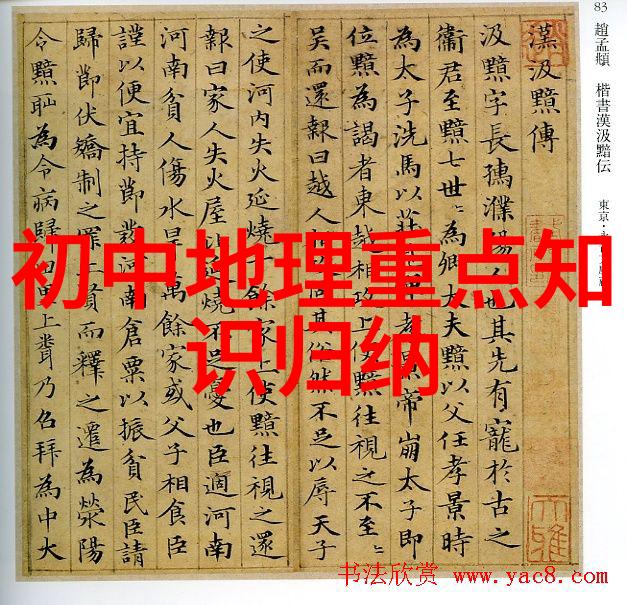 83 趙孟頫 楷書漢汲黯伝 東京・
漢汲黯傳
汲黯字長孺濮陽人也其先有寵於古之
衞君至黯七世〻為卿大夫黯以父任孝景時
為太子洗馬以莊見憚孝景帝崩太子即
位黯為謁者東越相攻上使黯往視之不至〻
吳而還報曰越人相其俗然不足以辱天子
之使河內失火延燒餘家上使黯往視之還
報曰家人失火屋比延燒不足憂也臣適河南
河南貧人傷水旱萬餘家或父子相食臣
謹以便宜持節發河南倉粟以振貧民臣請
歸節伏矯制之罪上賢而釋之遷為滎陽
令黯耻為令病歸田里上聞乃召拜為中大
初中地理重点知
识归纳
书法欣赏 www.yac8.com